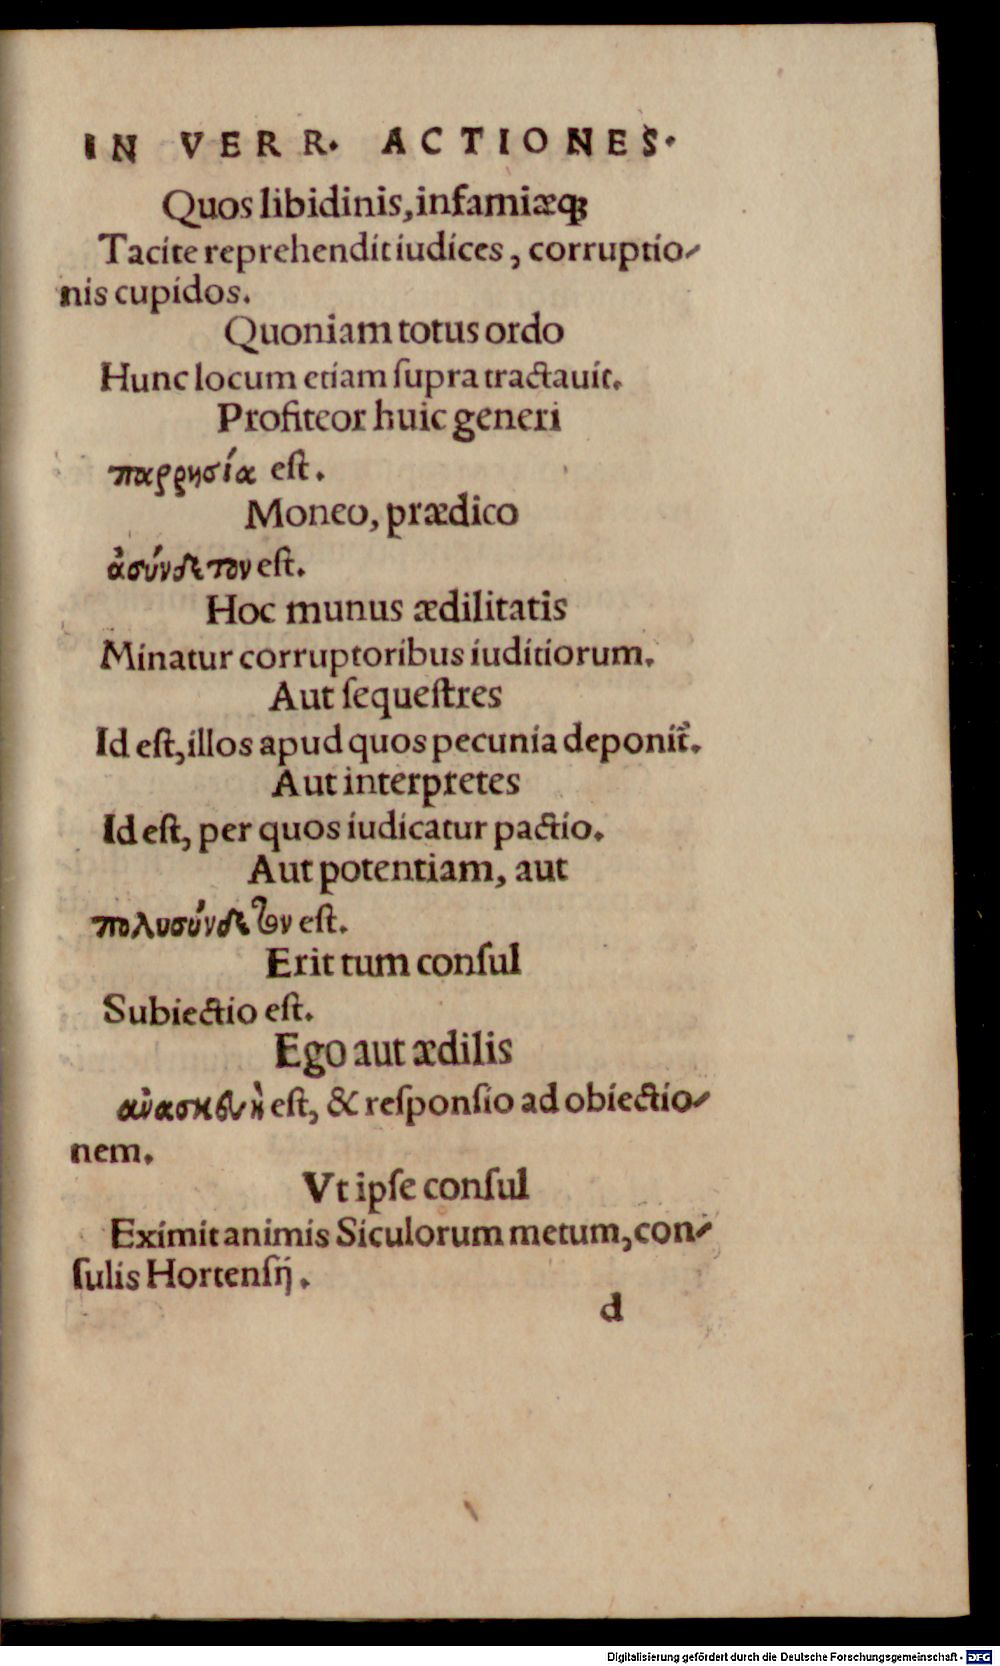 IN VERR. ACTIONES.
Quos libidinis, infamiæq;
Tacite reprehendit iudices, corruptio-
nis cupidos.
Quoniam totus ordo
Hunc locum etiam ſupra tractauit.
Profiteor huic generi
παρρησία eſt.
Moneo, prædico
ἀσύνδετον eſt.
Hoc munus ædilitatis
Minatur corruptoribus iuditiorum.
Aut ſequeſtres
Id eſt, illos apud quos pecunia deponit̃.
Aut interpretes
Id eſt, per quos iudicatur pactio.
Aut potentiam, aut
πολυσύνδετον eſt.
Erit tum conſul
Subiectio eſt.
Ego aut ædilis
ἀνασκευὴ eſt, & reſponſio ad obiectio-
nem.
Vt ipſe conſul
Eximit animis Siculorum metum, con-
ſulis Hortenſij.
d
Digitalisierung gefördert durch die Deutsche Forschungsgemeinschaft - DFG